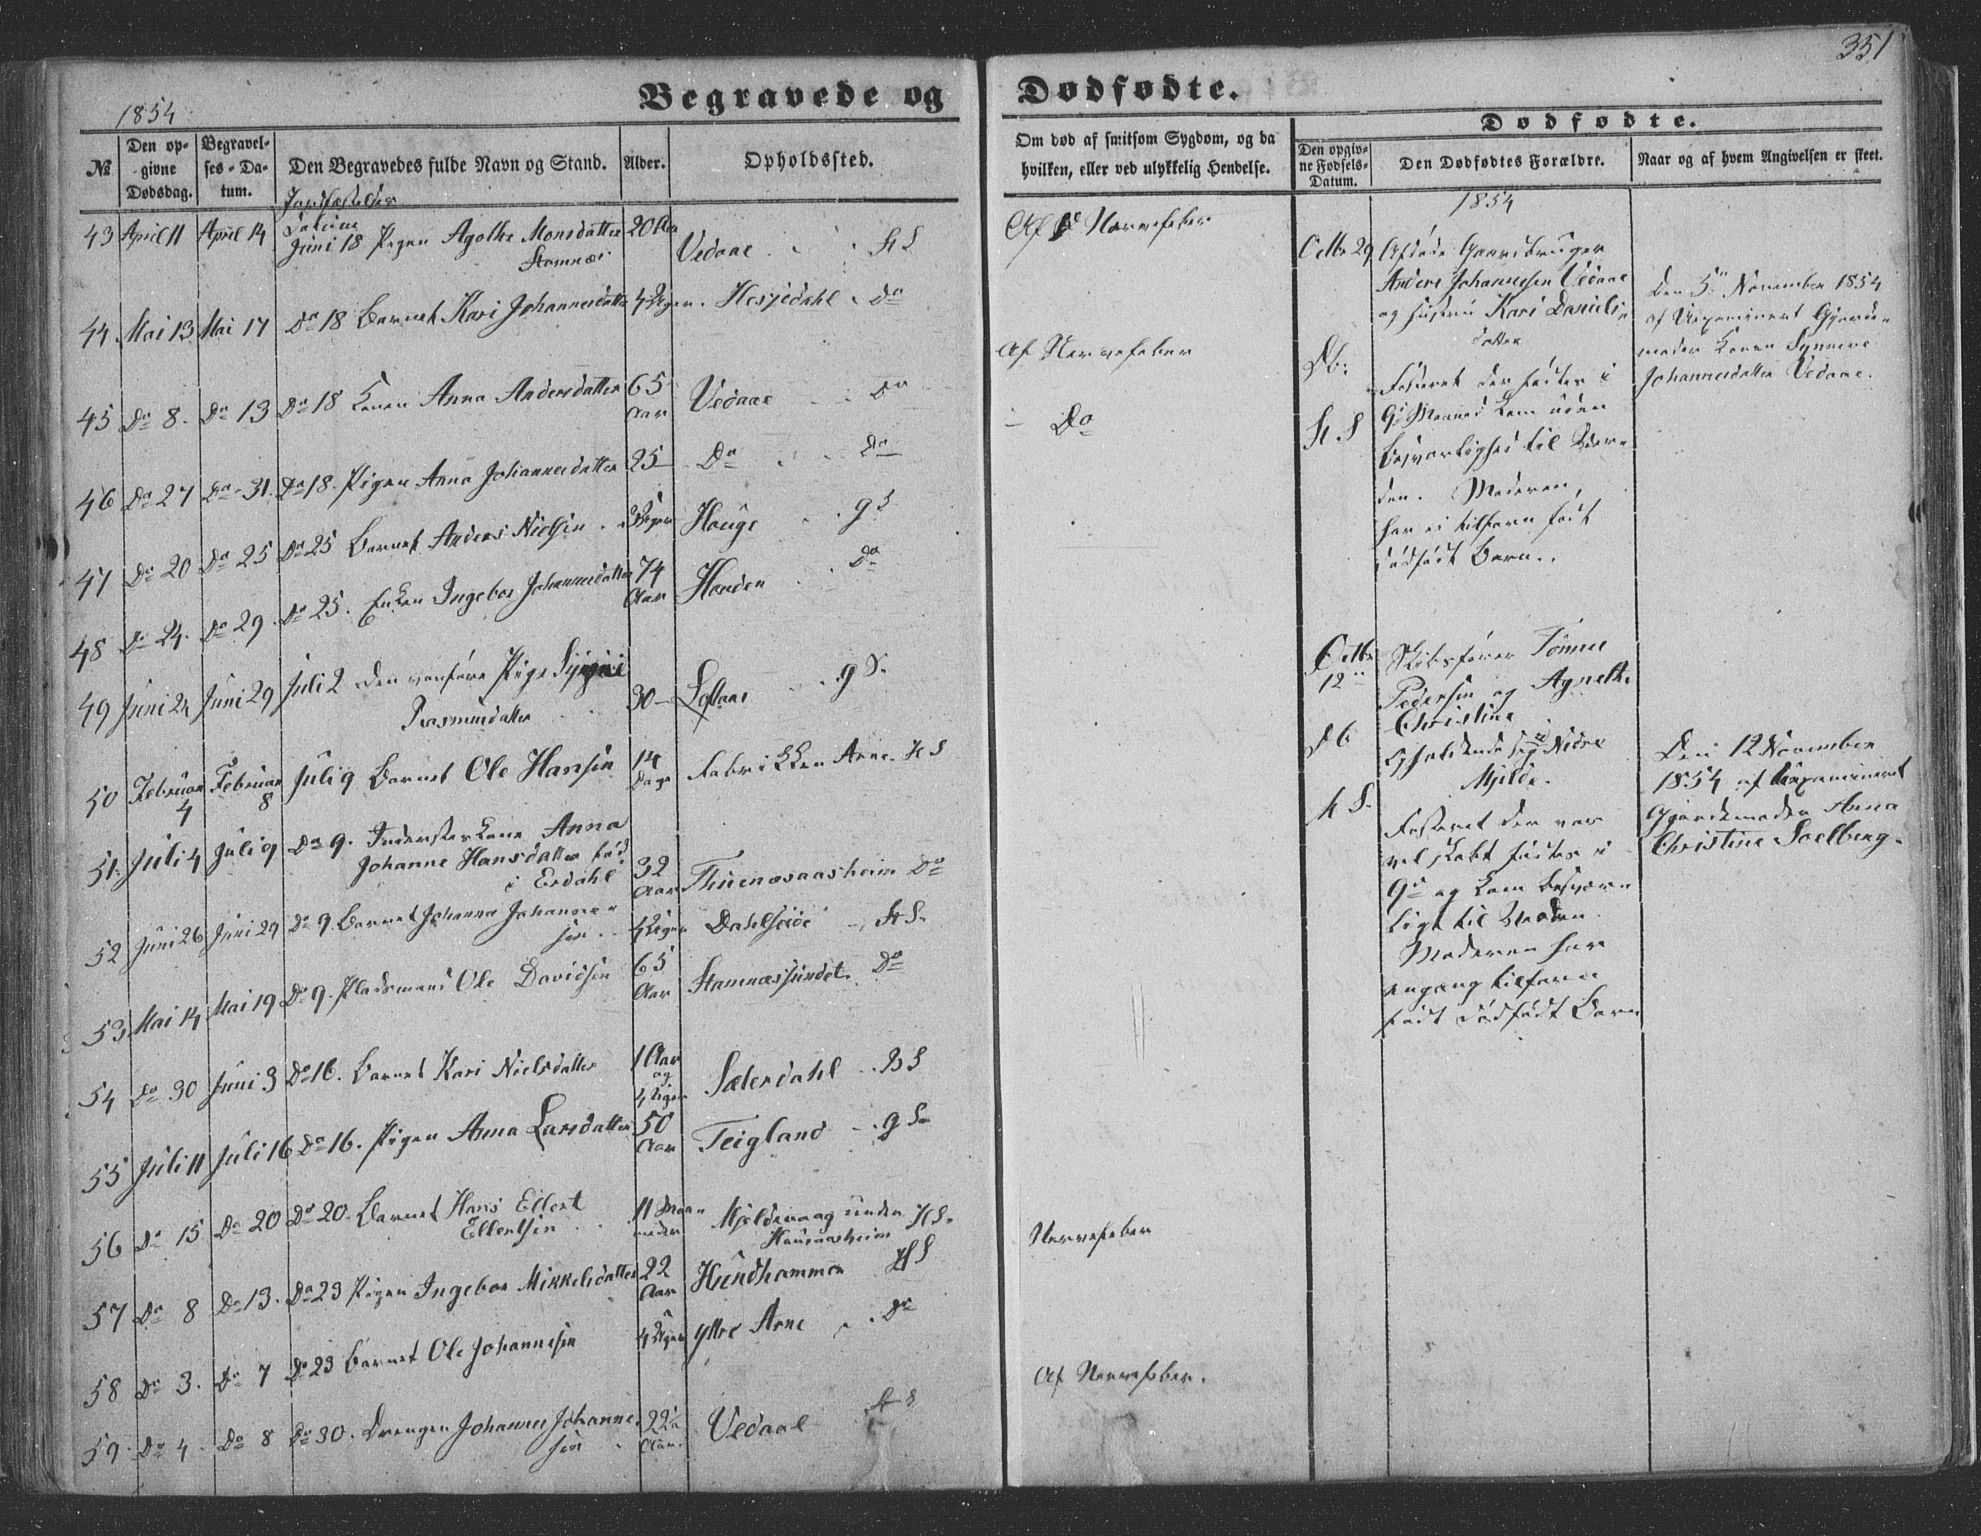 351
1854
Begravede og Dødfødte.
№
Den opgivne Dødsdag.
Begravelses-Datum.
Den Begravedes fulde Navn og Stand.
Alder.
Opholdssted.
Om død af smitsom Sygdom, og da hvilken, eller ved ulykkelig Hendelse.
Dødfødte.
Den opgivne Fødsels-Datum.
Den Dødfødtes Forældre.
Naar og af hvem Angivelsen er skeet.
Jordfæstelses
Datum
43 April 11 April 14 Juni 18 Pigen Agothe Monsdatter 20 Aar Vedaae HS Af Nervefeber
Stamnæs
44 Mai 13 Mai 17 Do 18 Barnet Kari Johannesdatter 4 Uger Hesjedahl Do
Af Nervefeber
45 Do 8. Do 13 Do 18 Konen Anna Andersdatter 65 Aar Vedaae Do
- Do
46 Do 27 Do 31. Do 18. Pigen Anna Johannesdatter 25 Do Do
47 Do 20 Do 25 Do 25 Barnet Anders Nielsen Uger Houge g S
48 Do 24. Do 29. Do 25. Enken Ingebor Johannesdatter 74 Aar Do
49 Juni 24 Juni 29 Juli 2 Den vanføre Pige
Rasmusdatter 30 Loftaas g S.
50 Februar 4 Februar 8 Juli 9 Barnet Ole Hansen 14 Dage Fabrikken Arne HS
51. Juli 4 Juli 9 Do 9. Inderster Kone Anna
Johanne Hansdatter fød
i Erdahl 32 Aar Do
52 Juni 26 Juni 29 Do 9. Barnet Johanna Johannesen 4 Uger Dahlseide HS
53 Mai 14 Mai 19 Do 9. Pladsmand Ole Davidsen 65 Aar Stamnæssundet Do
54 Do 30 Juni 3 Do 16. Barnet Kari Nielsdatter 1 Aar og 4 Uger Sæterdahl
55 Juli 11 Juli 16 Do 16. Pigen Anna Larsdatter 50 Aar Teigland g S
56 Do 15 Do 20 Do 20. Barnet Hans Ellert
Ellertsen 11 Maaneder Mjeldevaag under
HS.
Nervefeber
57 Do 8 Do 13. Do 23 Pigen Ingebor Mikkelsdatter 22 Aar Hundhammer HS
58 Do 3. Do 7 Do 23 Barnet Ole Johannesen 4 Uger Yttre Arne Do
Af Nervefeber.
59. Do 4. Do 8 Do 30. Drengen Johannes Johannesen 22 Aar Vedaae
1854
Octbr 29
Db:
H. S
Afdøde Gaardbruger
Anders Johannesen Vedaae
og Hustru Kari Danielsdatter
Fosteret der fødtes i
9de Maaned kom uden
Besværlighed til Verden. Moderen,
har ei tilforn født
dødfødt Barn.
Den 5te November 1854
af Uexamineret Gjordemoder Konen Synneve
Johannesdatter Vedaae.
Octbr
12
Db
HS.
Skibsfører Tønnes
Pedersen og Agnethe
Christine
opholdende sig Nedre
Mjelde.
Fosteret der var
vel skabt fødtes i
9de og kom besværligt til Verden.
Moderen har
engang tilforn
født dødfødt Barn
Den 12 November
1854 af Uexamineret
Gjordemoder Anna
Christine Soelberg.